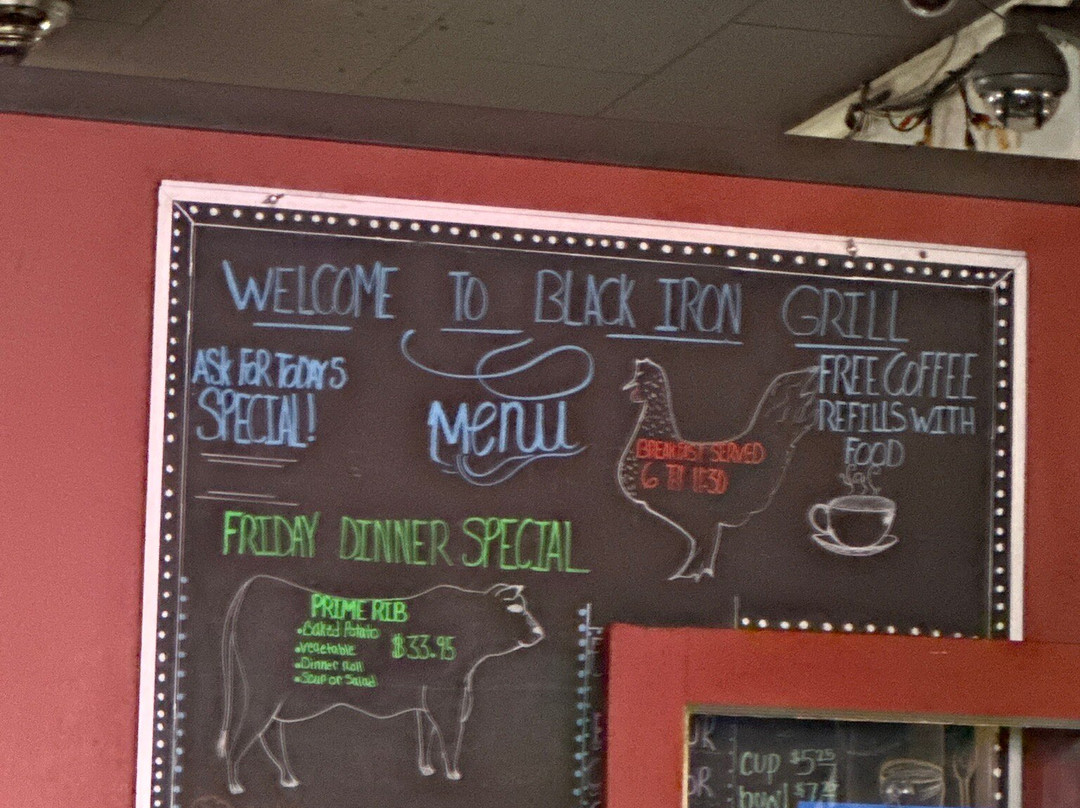 WELCOME TO BLACK IRON GRILL
ASK FOR TODAYS
SPECIAL!
Menu
BREAKFAST SERVED
6 Til 11:30
FREE COFFEE
REFILLS WITH
FOOD
FRIDAY DINNER SPECIAL
PRIME RIB
•Baked Potato
•Vegetable
•Dinner Roll
•Soup or Salad
$33.95
CUP $5.25
bowl